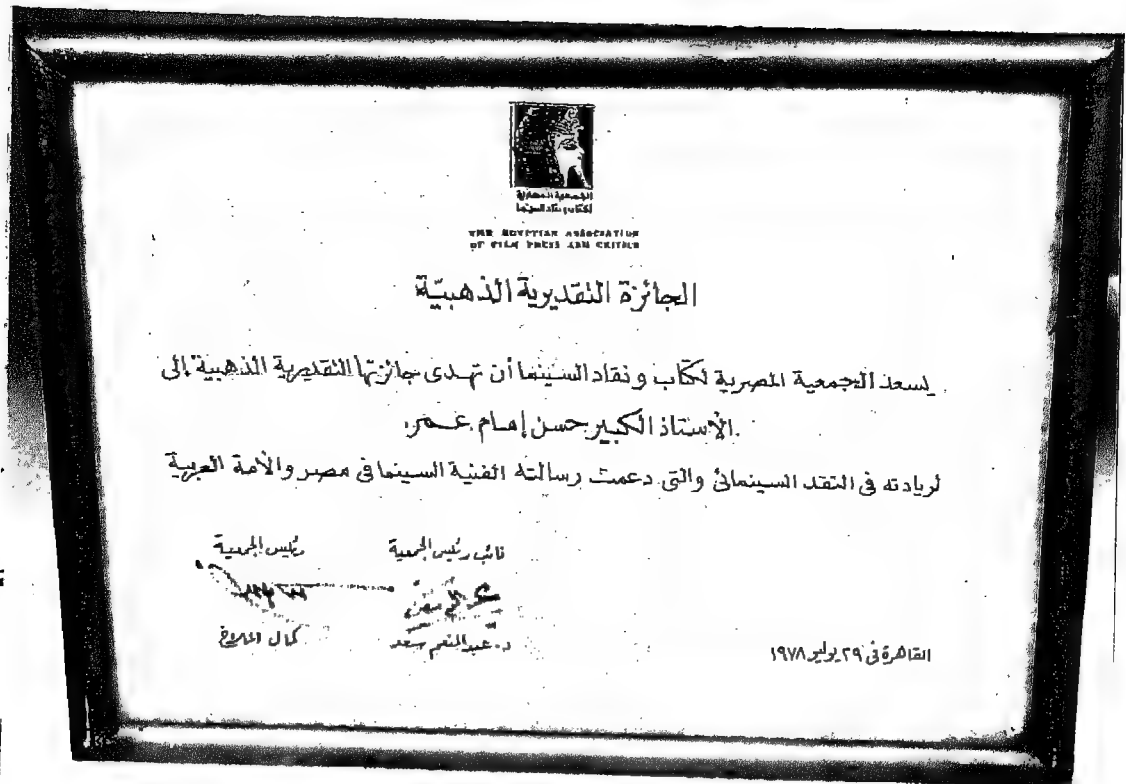 الجمعية المصرية
لكتاب ونقاد السينما
THE EGYPTIAN ASSOCIATION
OF FILM PRESS AND CRITICS
الجائزة التقديرية الذهبيّة
يسعد الجمعية المصرية لكتاب ونقاد السينما أن تهدى جائزتها التقديرية الذهبية إلى
الأستاذ الكبير حسن إمام عمر
لريادته فى النقد السينمائى والتى دعمت رسالته الفنية السينما فى مصر والأمة العربية
نائب رئيس الجمعية رئيس الجمعية
د. عبدالمنعم سعد كمال الملاخ
القاهرة فى ٢٩ يوليو ١٩٧٨